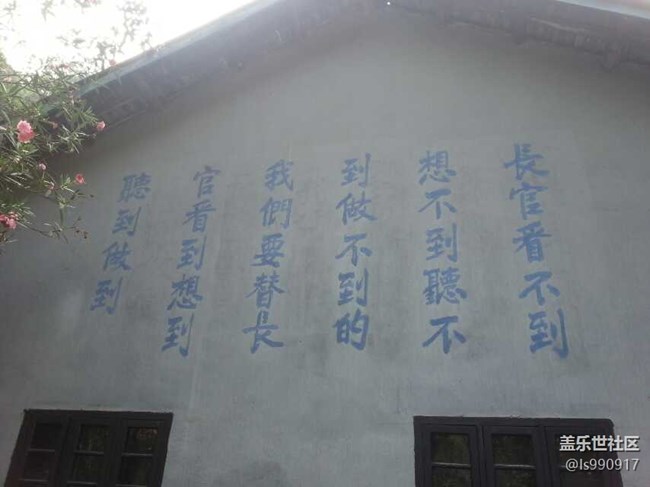 長官看不到
想不到聽不
到做不到的
我們要替長
官看到想到
聽到做到
盖乐世社区
@ls990917